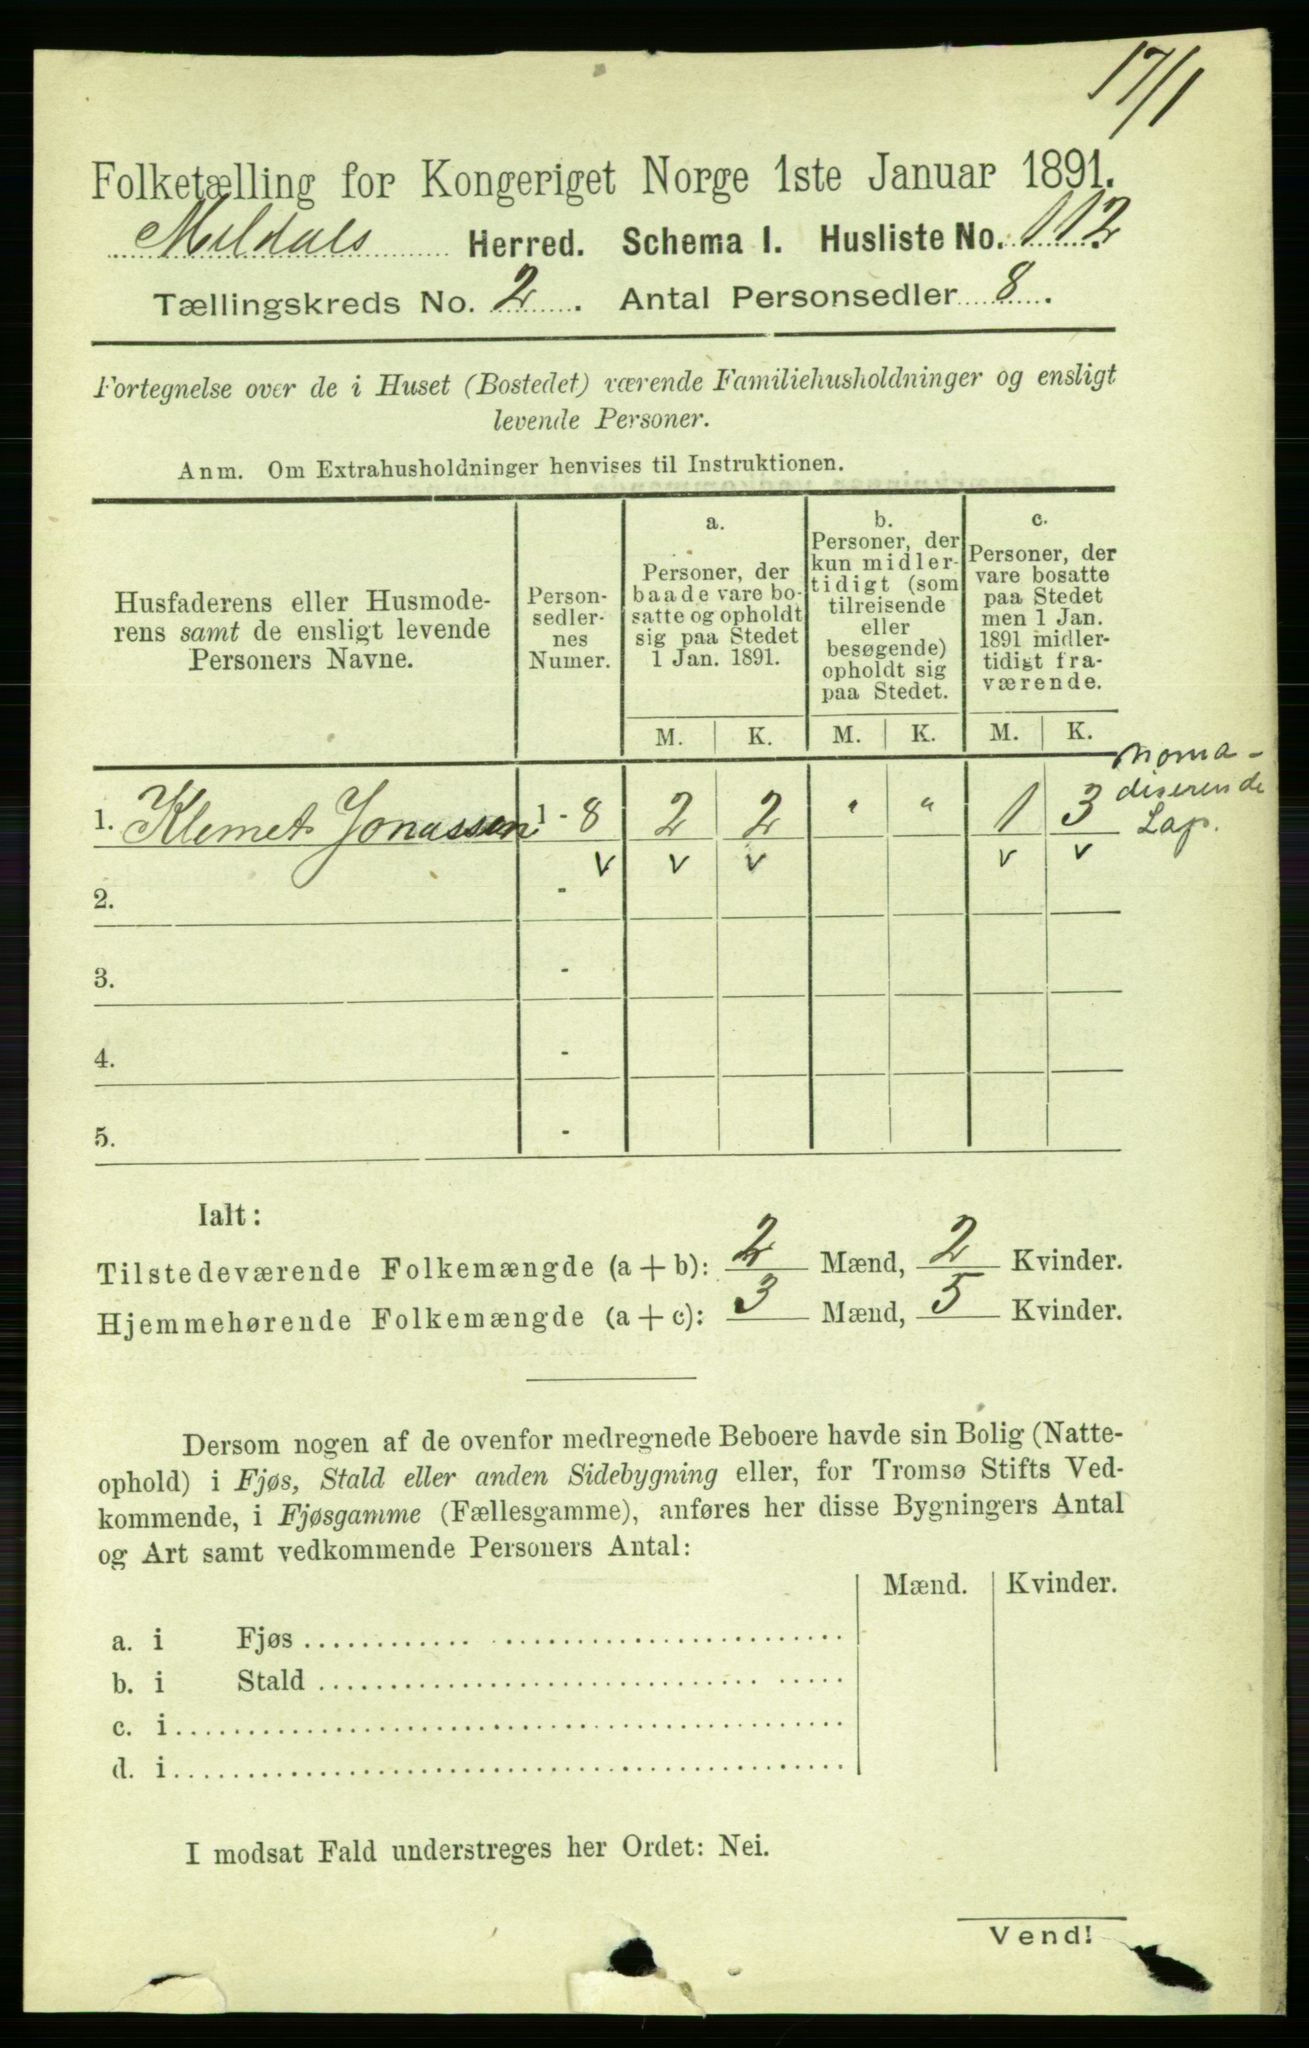 17/1
Folketælling for Kongeriget Norge 1ste Januar 1891.
Meldals Herred. Schema I. Husliste No. 112
Tællingskreds No. 2. Antal Personsedler 8.
Fortegnelse over de i Huset (Bostedet) værende Familiehusholdninger og ensligt
levende Personer.
Anm. Om Extrahusholdninger henvises til Instruktionen.
Husfaderens eller Husmode-
rens samt de ensligt levende
Personers Navne.
Person-
sedler-
nes
Numer.
a.
Personer, der
baade vare bo-
satte og opholdt
sig paa Stedet
1 Jan. 1891.
b.
Personer, der
kun midler-
tidigt (som
tilreisende
eller
besøgende)
opholdt sig
paa Stedet.
c.
Personer, der
vare bosatte
paa Stedet
men 1 Jan.
1891 midler-
tidigt fra-
værende.
M. K. M. K. M. K.
1. Klemet Jonassen 1 - 8 2 2 " " 1 3 noma-
diserende
Lap.
v v v v v
2. -
3. -
4. -
5. -
Ialt:
Tilstedeværende Folkemængde (a + b): 2 Mænd, 2 Kvinder.
Hjemmehørende Folkemængde (a + c): 3 Mænd, 5 Kvinder.
Dersom nogen af de ovenfor medregnede Beboere havde sin Bolig (Natte-
ophold) i Fjøs, Stald eller anden Sidebygning eller, for Tromsø Stifts Ved-
kommende, i Fjøsgamme (Fællesgamme), anføres her disse Bygningers Antal
og Art samt vedkommende Personers Antal:
Mænd. Kvinder.
a. i Fjøs
b. i Stald
c. i
d. i
I modsat Fald understreges her Ordet: Nei.
Vend!